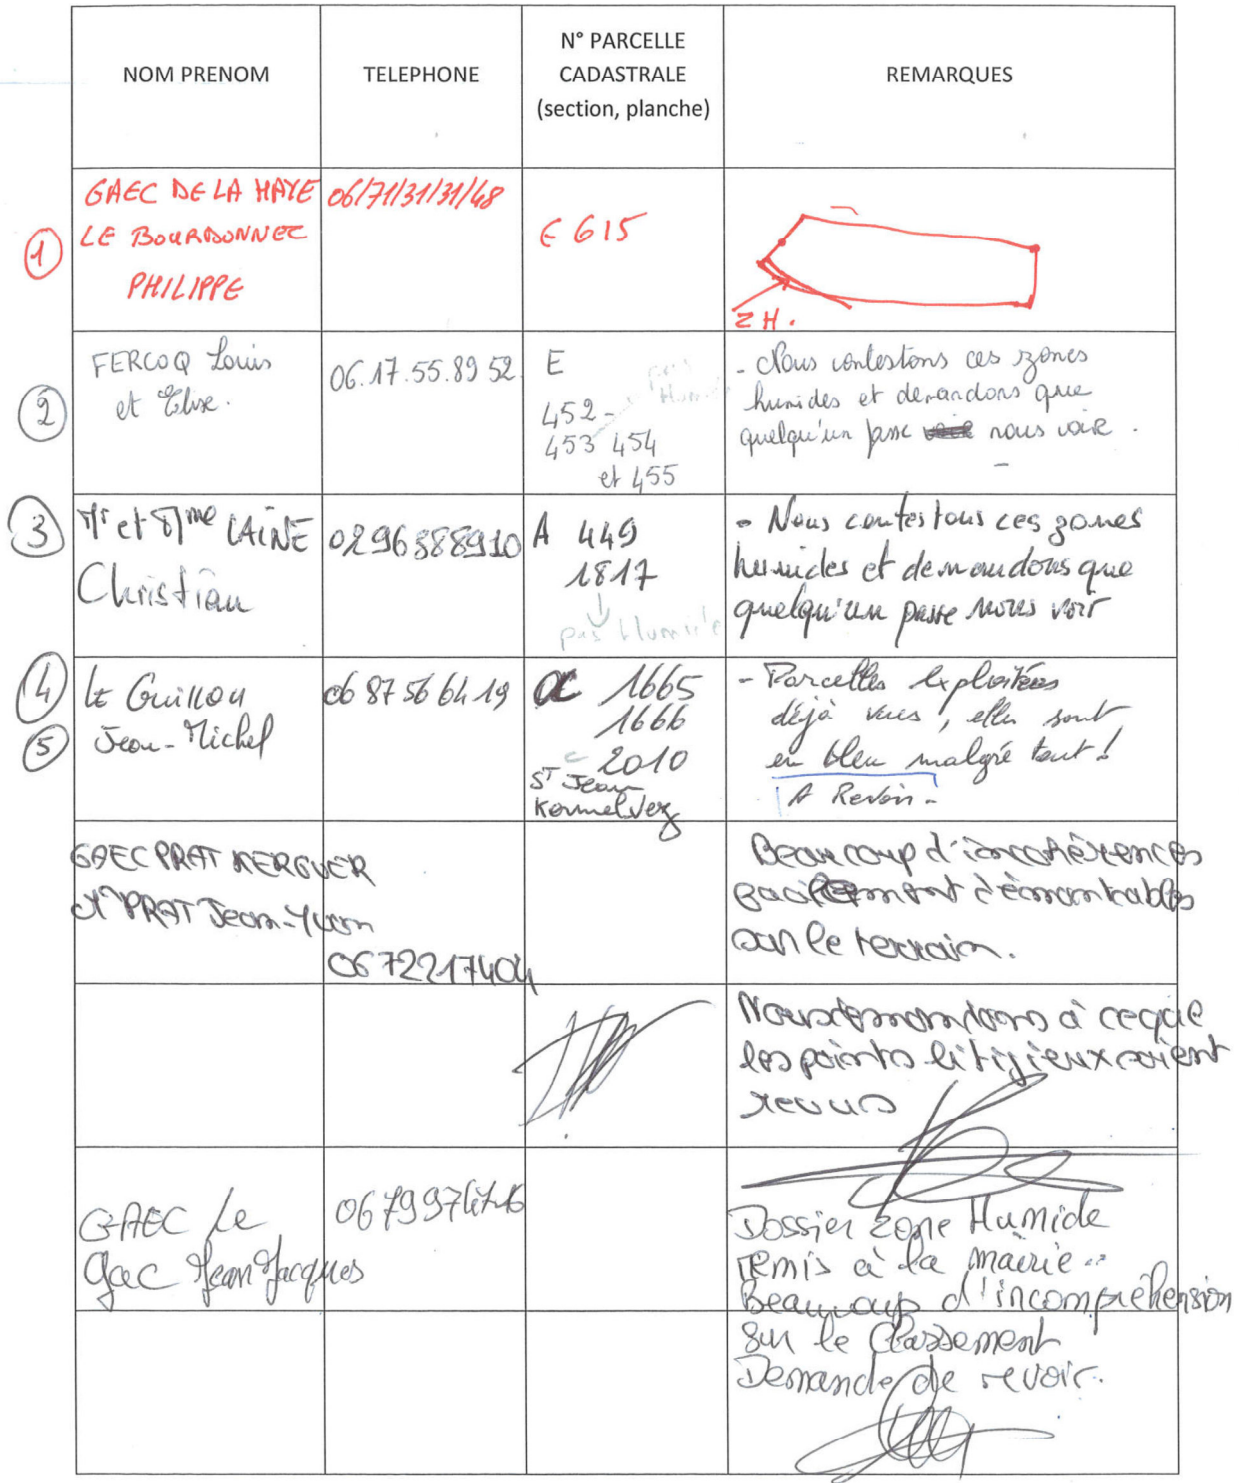 NOM PRENOM
TELEPHONE
N° PARCELLE
CADASTRALE
(section, planche)
REMARQUES
1
GAEC DE LA HAYE
LE BOURDONNEC
PHILIPPE
06/71/31/31/48
E 615
ZH.
2
FERCOQ Louis
et Elise.
06.17.55.89 52
E
452 -
453 454
et 455
pas
Humide
- Nous contestons ces zones
humides et demandons que
quelqu'un passe nous voir.
3
Mr et Mme LAINE
Christian
0296388910
A 449
1817
pas Humide
- Nous contestons ces zones
humides et demandons que
quelqu'un passe nous voir
4
5
Le Guillou
Jean-Michel
06 87 56 64 19
1665
1666
C 2010
St Jean
Kermelvez
- Parcelles exploitées
déjà vues, elles sont
en bleu malgré tout !
A Revoir -
GAEC PRAT KERGUER
Mr PRAT Jean-Yvon
0672217404
Beaucoup d'incohérences
facilement démontrables
sur le terrain.
Nous demandons à ce que
les points litigieux soient
revus
GAEC Le
Gac Jean Jacques
Dossier zone Humide
remis à la mairie..
Beaucoup d'incompréhension
sur le Classement
Demande de revoir.